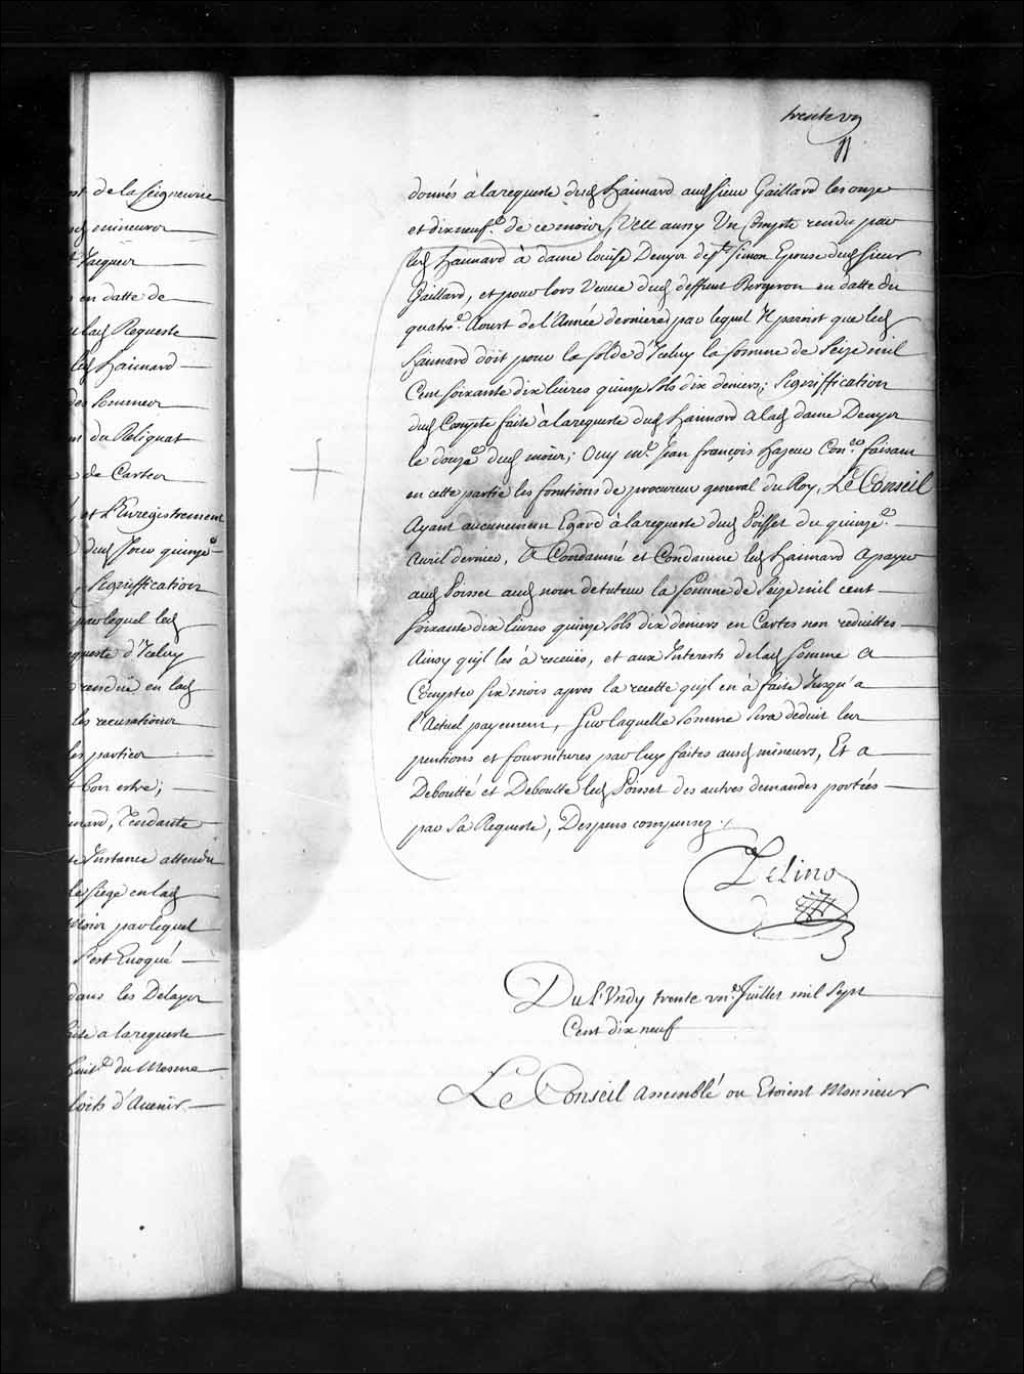 trente un
nt de la Seigneurie
mineurs
Jacques
en datte de
lad Requeste
led haimard
des Sommes
du Reliquat
de Cartes
et L'Enregistrement
dud Jour quinze
Signiffication
par lequel led
requeste d'Iceluy
rendüe en lad
les recusations
les parties
bon estre;
mard, Tendante
te Instance attendu
le siege en lad
par lequel
s'est Evoqué
dans les Delays
faite a la requeste
huit.e du Mesme
d'avenir
donnés à la requeste dud haimard aud Sieur Gaillard les onze
et dixneuf.e de ce mois, Veu aussy Un Compte rendu par
led haimard à dame louise Denys de S.t Simon Epouse dud Sieur
Gaillard, et pour lors Veuve dud deffunt Bergeron en datte du
quatre. Aoust de l'Année derniere, par lequel Il paroist que led
haimard doit pour la solde d'Iceluy la somme de Seize mil
Cent soixante dix livres quinze sols dix deniers; Signiffication
dud Compte faite à la requeste dud haimard a lad dame Denys
le douze.e dud mois; Ouy m.e Jean françois hazeur Con.er faisant
en cette partie les fonctions de procureur general du Roy, Le Conseil
Ayant aucunement Egard à la requeste dud Poisset du quinze.e
Avril dernier, A Condamné et Condamne led haimard a payer
aud Poisset aud nom de tuteur la somme de Seize mil cent
soixante dix livres quinze sols dix deniers en Cartes non reduittes
Ainsy qu'jl les à receües, et aux Interests de lad Somme a
Compter six mois apres la recette qu'jl en à faite Jusqu'a
l'Actuel payement, Sur laquelle Somme sera deduit les
pentions et fournitures par luy faites ausd mineurs, Et a
Deboutté et Deboutte led Poisset des autres demandes portées
par sa Requeste, Despens compensez ./.
Delino
Du Lundy trente un.e Juillet mil Sept
Cent dix neuf
Le Conseil assemblé ou Etoient Monsieur